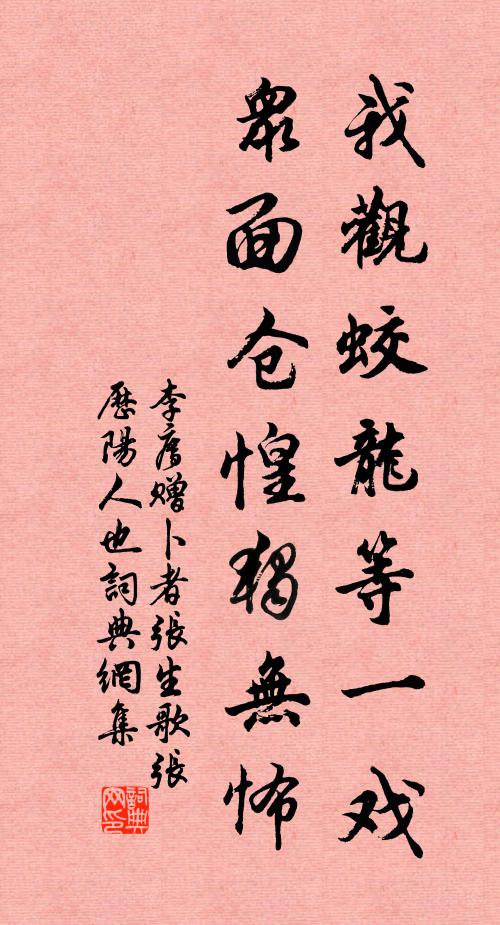 我觀蛟龍等一戏
眾面仓惶獨無怖
李廌赠卜者張生歌張
歷陽人也詞典網集
詞典网印